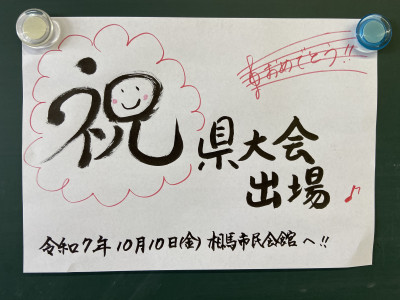 おめでとう!!
祝
県大会
出場♪
令和7年10月10日(金)相馬市民会館へ!!